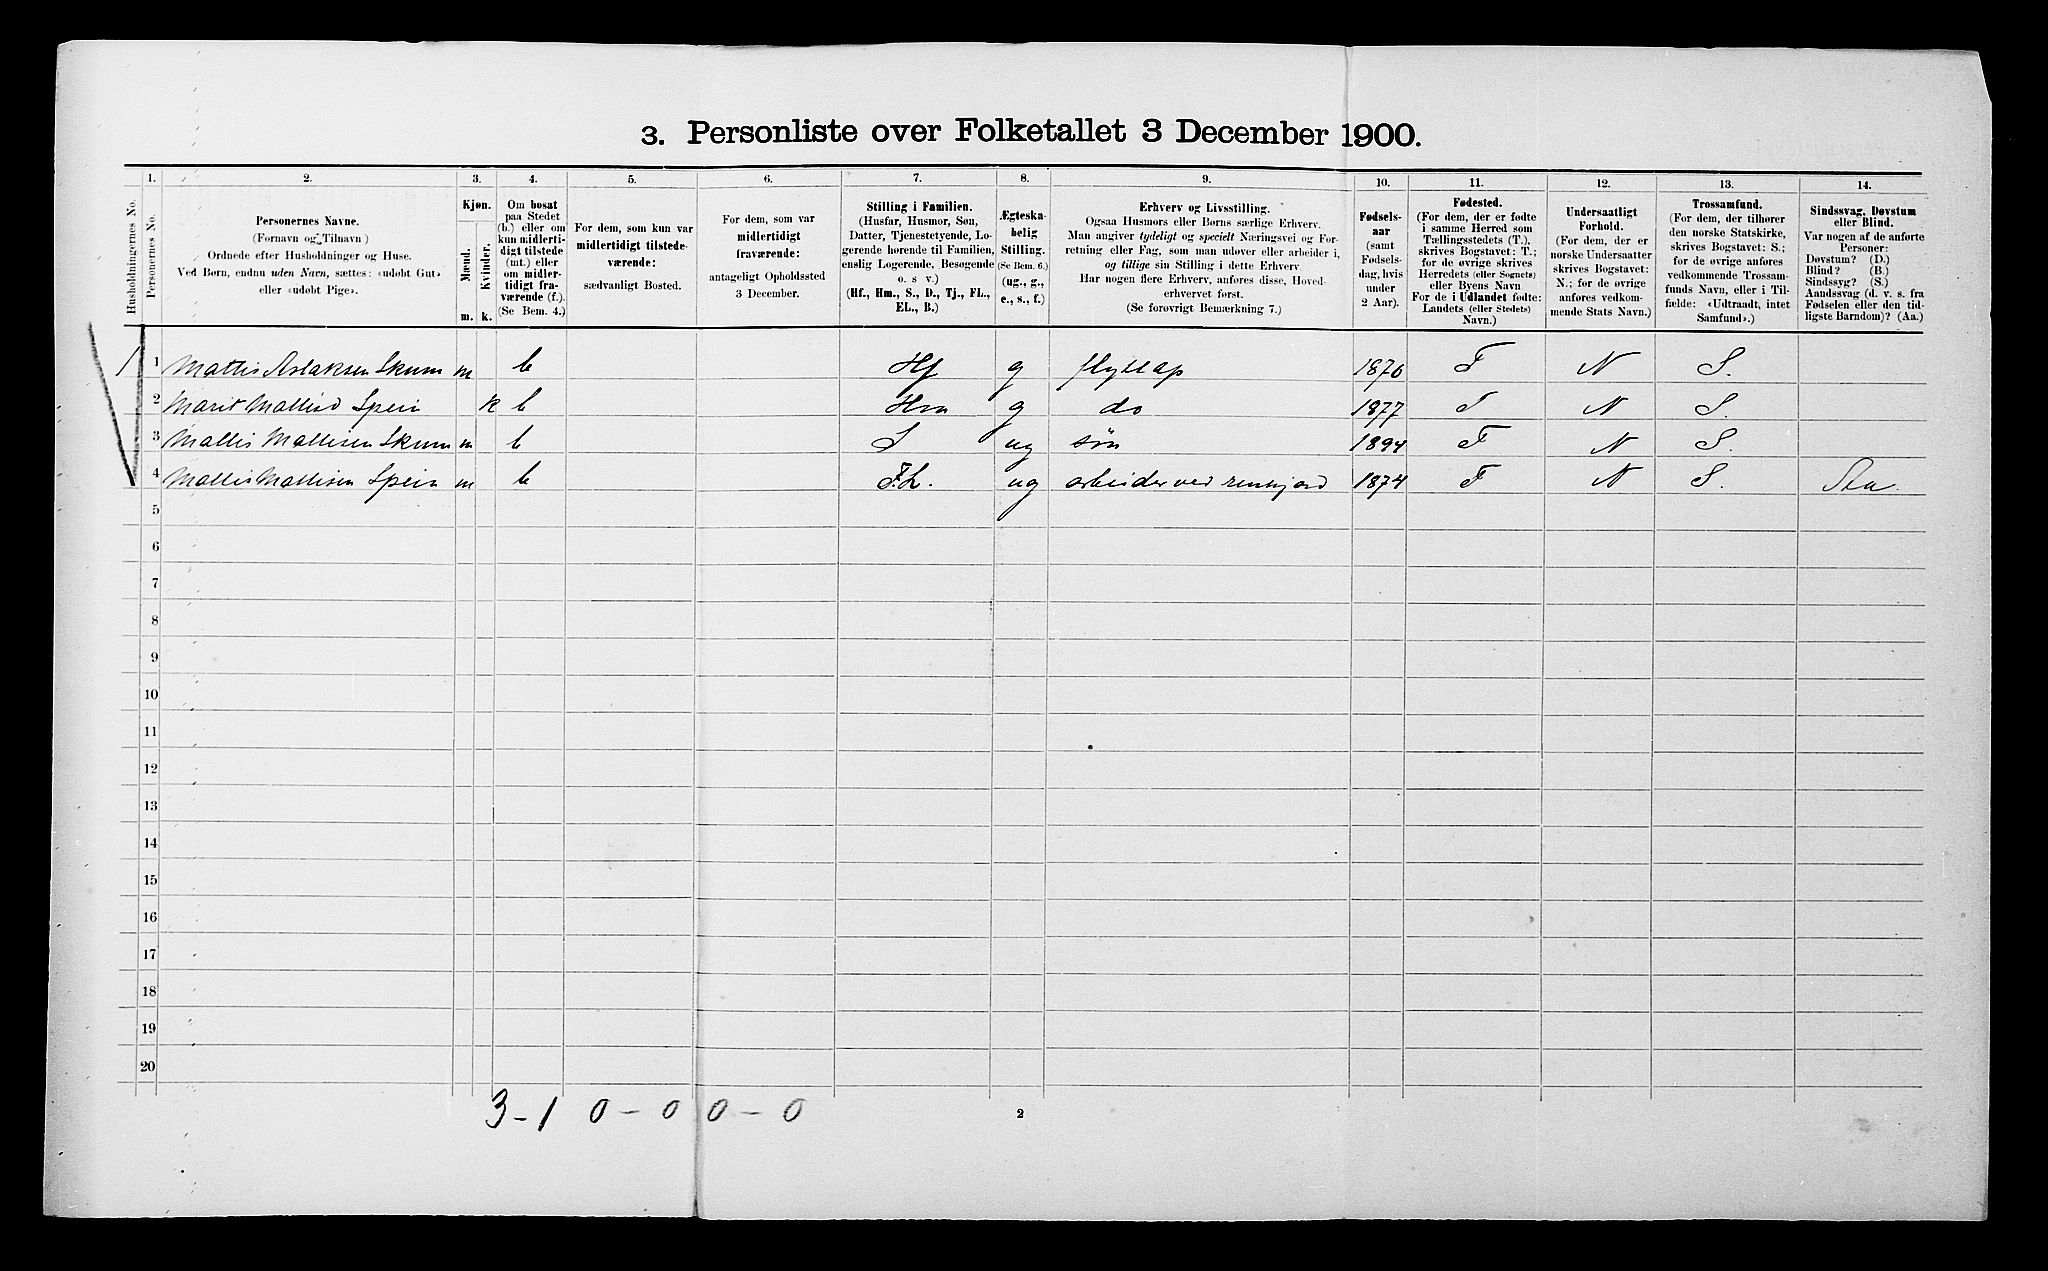 3. Personliste over Folketallet 3 December 1900.
1. 2. 3. 4. 5. 6. 7. 8. 9. 10. 11. 12. 13. 14.
Husholdningernes No.
Personernes No.
Personernes Navne.
(Fornavn og Tilnavn)
Ordnede efter Husholdninger og Huse.
Ved Børn, endnu uden Navn, sættes: «udøbt Gut»
eller «udøbt Pige».
Kjøn.
Mænd.
Kvinder.
m. k.
Om bosat
paa Stedet
(b.) eller om
kun midlerti-
digt tilstede
(mt.) eller
om midler-
tidigt fra-
værende (f.).
(Se Bem. 4.)
For dem, som kun var
midlertidigt tilstede-
værende:
sædvanligt Bosted.
For dem, som var
midlertidigt
fraværende:
antageligt Opholdssted
3 December.
Stilling i Familien.
(Husfar, Husmor, Søn,
Datter, Tjenestetyende, Lo-
gerende hørende til Familien,
enslig Logerende, Besøgende
o. s v.)
(Hf., Hm., S., D., Tj., FL.,
EL., B.)
Ægteska-
belig
Stilling.
(Se Bem. 6.)
(ug., g.,
e., s., f.)
Erhverv og Livsstilling.
Ogsaa Husmors eller Børns særlige Erhverv.
Man angiver tydeligt og specielt Næringsvei og For-
retning eller Fag, som man udøver eller arbeider i,
og tillige sin Stilling i dette Erhverv
Har nogen flere Erhverv, anføres disse, Hoved-
erhvervet først.
(Se forøvrigt Bemærkning 7.)
Fødsels-
aar
(samt
Fødsels-
dag, hvis
under
2 Aar).
Fødested.
(For dem, der er fødte
i samme Herred som
Tællingsstedets (T.),
skrives Bogstavet: T.;
for de øvrige skrives
Herredets (eller Sognets)
eller Byens Navn
For de i Udlandet fødte:
Landets (eller Stedets)
Navn.)
Undersaatligt
Forhold.
(For dem, der er
norske Undersaatter
skrives Bogstavet:
N.; for de øvrige
anføres vedkom-
mende Stats Navn.)
Trossamfund.
(For dem, der tilhører
den norske Statskirke,
skrives Bogstavet: S.;
for de øvrige anføres
vedkommende Trossam-
funds Navn, eller i Til-
fælde: «Udtraadt, intet
Samfund».)
Sindssvag, Døvstum
eller Blind.
Var nogen af de anførte
Personer:
Døvstum? (D.)
Blind? (B.)
Sindssyg? (S.)
Aandssvag (d. v. s. fra
Fødselen eller den tid-
ligste Barndom)? (Aa.)
1 1 Mattis Aslaksen Skum m b Hf g flytlap 1870 T N S.
2 Marit Mattisd Spein k b Hm g do 1877 T N S.
3 Mattis Mattisen Skum m b S ug søn 1894 T N S.
4 Mattis Mattisen Spein m b F.L. ug arbeider ved renhjord 1874 T N S.
5
6
7
8
9
10
11
12
13
14
15
16
17
18
19
20
3-1 0-0 0-0
2